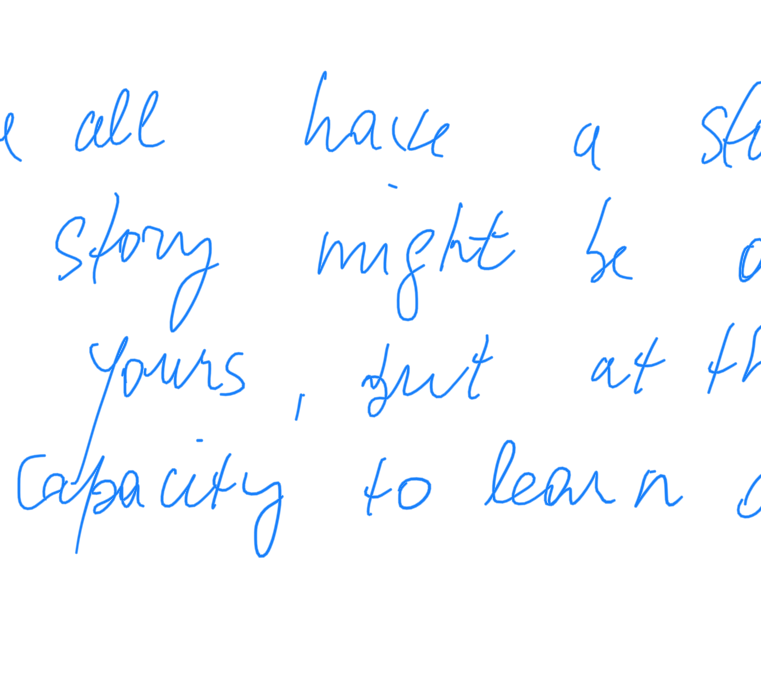 all have a
story might be
yours, but at
capacity to learn